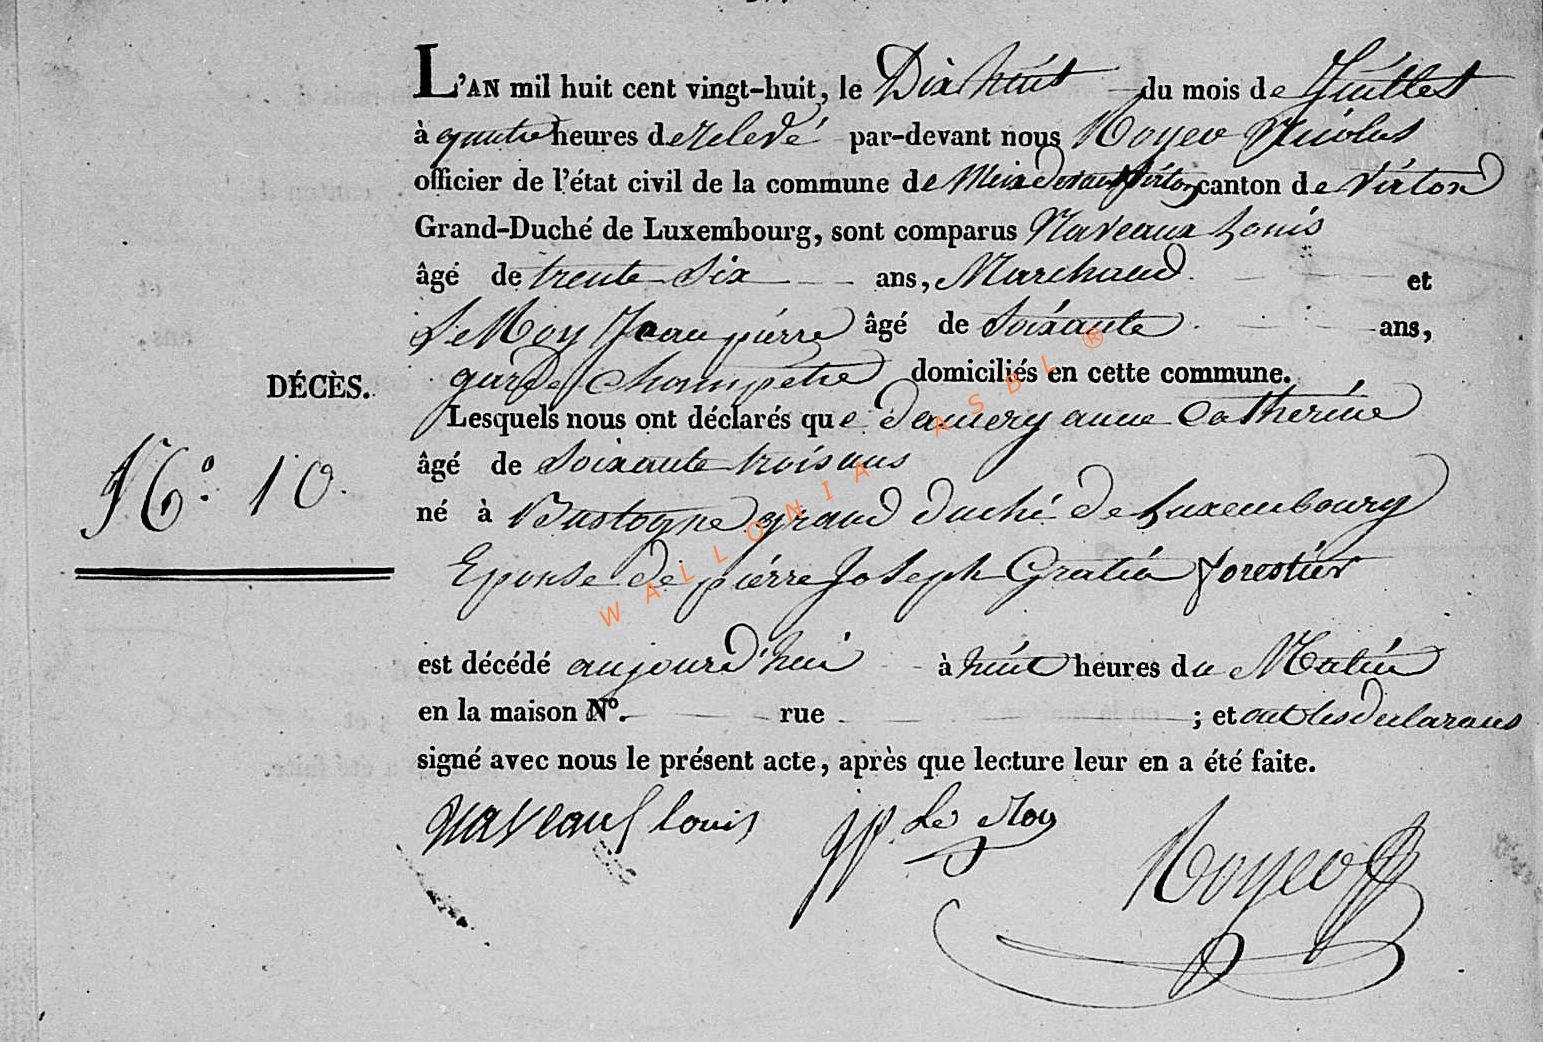 L'AN mil huit cent vingt-huit, le Dix huit du mois de Juillet
à quatre heures de relevé par-devant nous Royer Nicolas
officier de l'état civil de la commune de Meix devant Virton canton de Virton
Grand-Duché de Luxembourg, sont comparus Naveaux Louis
âgé de trente Six ans, Marchand et
Le Roy Jean pierre âgé de Soixante ans,
garde Champetre domiciliés en cette commune.
DÉCÈS.
Lesquels nous ont déclarés que Damery anne Catherine
âgé de Soixante trois ans
N° 10.
né à Bastogne grand duché de Luxembourg
Epouse de pierre Joseph Gratia forestier
est décédé aujourd'hui à huit heures du Matin
en la maison N°. rue ; et ont les declarans
signé avec nous le présent acte, après que lecture leur en a été faite.
naveaux louis JP. Le Roy
Royer
WALLONIA ASBL ®